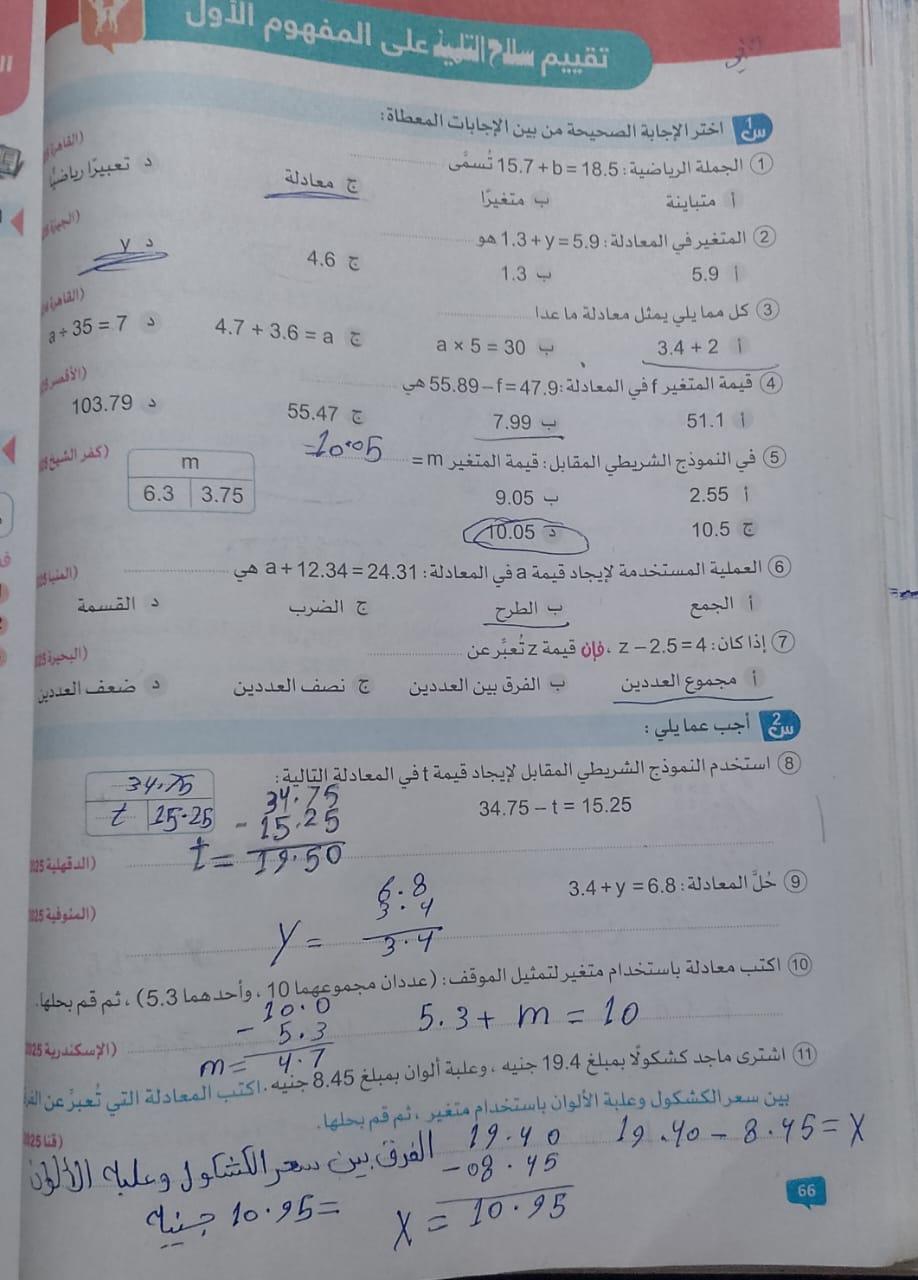 تقييم سلاح التلميذ على المفهوم الأول
س1 اختر الإجابة الصحيحة من بين الإجابات المعطاة:
1 الجملة الرياضية: 15.7 + b = 18.5 تُسمَّى (القاهرة
أ متباينة ب متغيرًا ج معادلة د تعبيرًا رياضيًّا
2 المتغير في المعادلة: 1.3 + y = 5.9 هو (الجيزة
أ 5.9 ب 1.3 ج 4.6 د y
3 كل مما يلي يمثل معادلة ما عدا (القاهرة
أ 3.4 + 2 ب a × 5 = 30 ج 4.7 + 3.6 = a د a ÷ 35 = 7
4 قيمة المتغير f في المعادلة: 55.89 – f = 47.9 هي (الأقصر
أ 51.1 ب 7.99 ج 55.47 د 103.79
5 في النموذج الشريطي المقابل: قيمة المتغير m = 10.05 (كفر الشيخ
m
6.3 3.75
أ 2.55 ب 9.05
ج 10.5 د 10.05
6 العملية المستخدمة لإيجاد قيمة a في المعادلة: a + 12.34 = 24.31 هي (المنيا
أ الجمع ب الطرح ج الضرب د القسمة
7 إذا كان: z – 2.5 = 4، فإن قيمة z تُعبِّر عن (البحيرة
أ مجموع العددين ب الفرق بين العددين ج نصف العددين د ضعف العددين
س2 أجب عما يلي:
8 استخدم النموذج الشريطي المقابل لإيجاد قيمة t في المعادلة التالية:
34.75 – t = 15.25
34.75
t 15.25
34.75
- 15.25
t = 19.50
(الدقهلية
9 حُلَّ المعادلة: 3.4 + y = 6.8
6.8
3.4
y = 3.4
(المنوفية
10 اكتب معادلة باستخدام متغير لتمثيل الموقف: (عددان مجموعهما 10، وأحدهما 5.3)، ثم قم بحلها.
5.3 + m = 10
10.0
- 5.3
m = 4.7
(الإسكندرية
11 اشترى ماجد كشكولًا بمبلغ 19.4 جنيه، وعلبة ألوان بمبلغ 8.45 جنيه. اكتب المعادلة التي تُعبِّر عن
بين سعر الكشكول وعلبة الألوان باستخدام متغير، ثم قم بحلها.
(قنا
19.40 - 8.45 = X
19.40
- 08.45
X = 10.95
الفرق بين سعر الكشكول وعلبة الألوان
= 10.95 جنيه
66